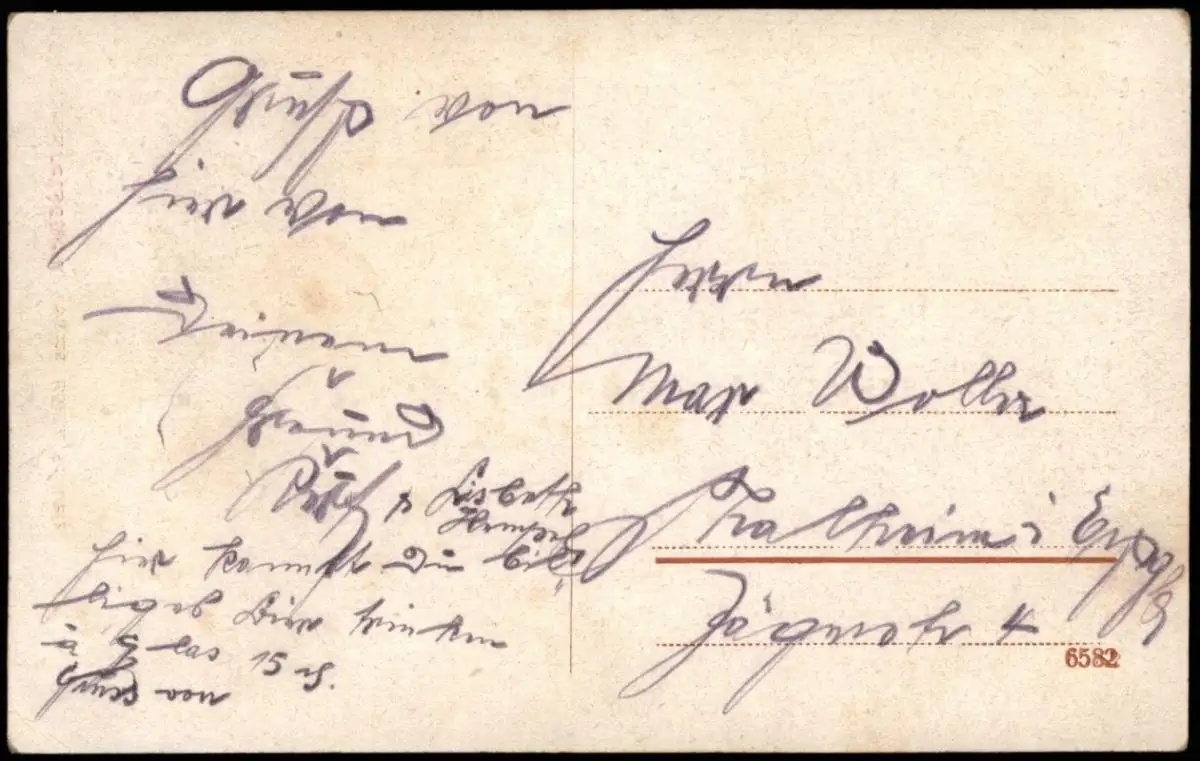 Gruß von
hier von
Deinem
Freund
Lisbeth
Hempel
hier kannst Du bil-
liges Bier trinken
a Glas 15 Pf.
Gruss von
Herrn
Max Woller
Thalheim i Erzgb
Jägerstr 4
6582